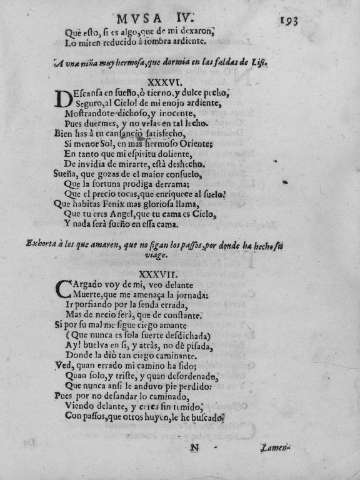 MVSA IV.
193
Què esto, si es algo, que de mi dexaron,
Lo miren reducido à sombra ardiente.
A una niña muy hermosa, que dormia en las faldas de Lisi.
XXXVI.
DEscansa en sueño, ò tierno, y dulce pecho,
Seguro, al Cielo! de mi enojo ardiente,
Mostrandote dichoso, y inocente,
Pues duermes, y no velas en tal lecho.
Bien has à tu cansancio satisfecho,
Si menor Sol, en mas hermoso Oriente;
En tanto que mi espiritu doliente,
De invidia de mirarte, està deshecho.
Sueña, que gozas de el maior consuelo,
Que la fortuna prodiga derrama;
Que el precio tocas, que enriquece al suelo.
Que habitas Fenix mas gloriosa llama,
Que tu eres Angel, que tu cama es Cielo,
Y nada serà sueño en essa cama.
Exhorta à los que amaren, que no sigan los passos, por donde ha hecho su
viage.
XXXVII.
CArgado voy de mi, veo delante
Muerte, que me amenaça la jornada;
Ir porfiando por la senda errada,
Mas de necio serà, que de constante.
Si por su mal me sigue ciego amante
(Que nunca es sola suerte desdichada)
Ay! buelva en sì, y atràs, no dè pisada,
Donde la diò tan ciego caminante.
Ved, quan errado mi camino ha sido;
Quan solo, y triste, y quan desordenado,
Que nunca ansi le anduvo pie perdido:
Pues por no desandar lo caminado,
Viendo delante, y cerca fin temido,
Con passos, que otros huyen, le he buscado.
N
Lamen-